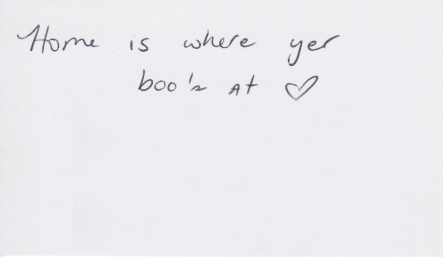 Home is where yer
boo's at ♡